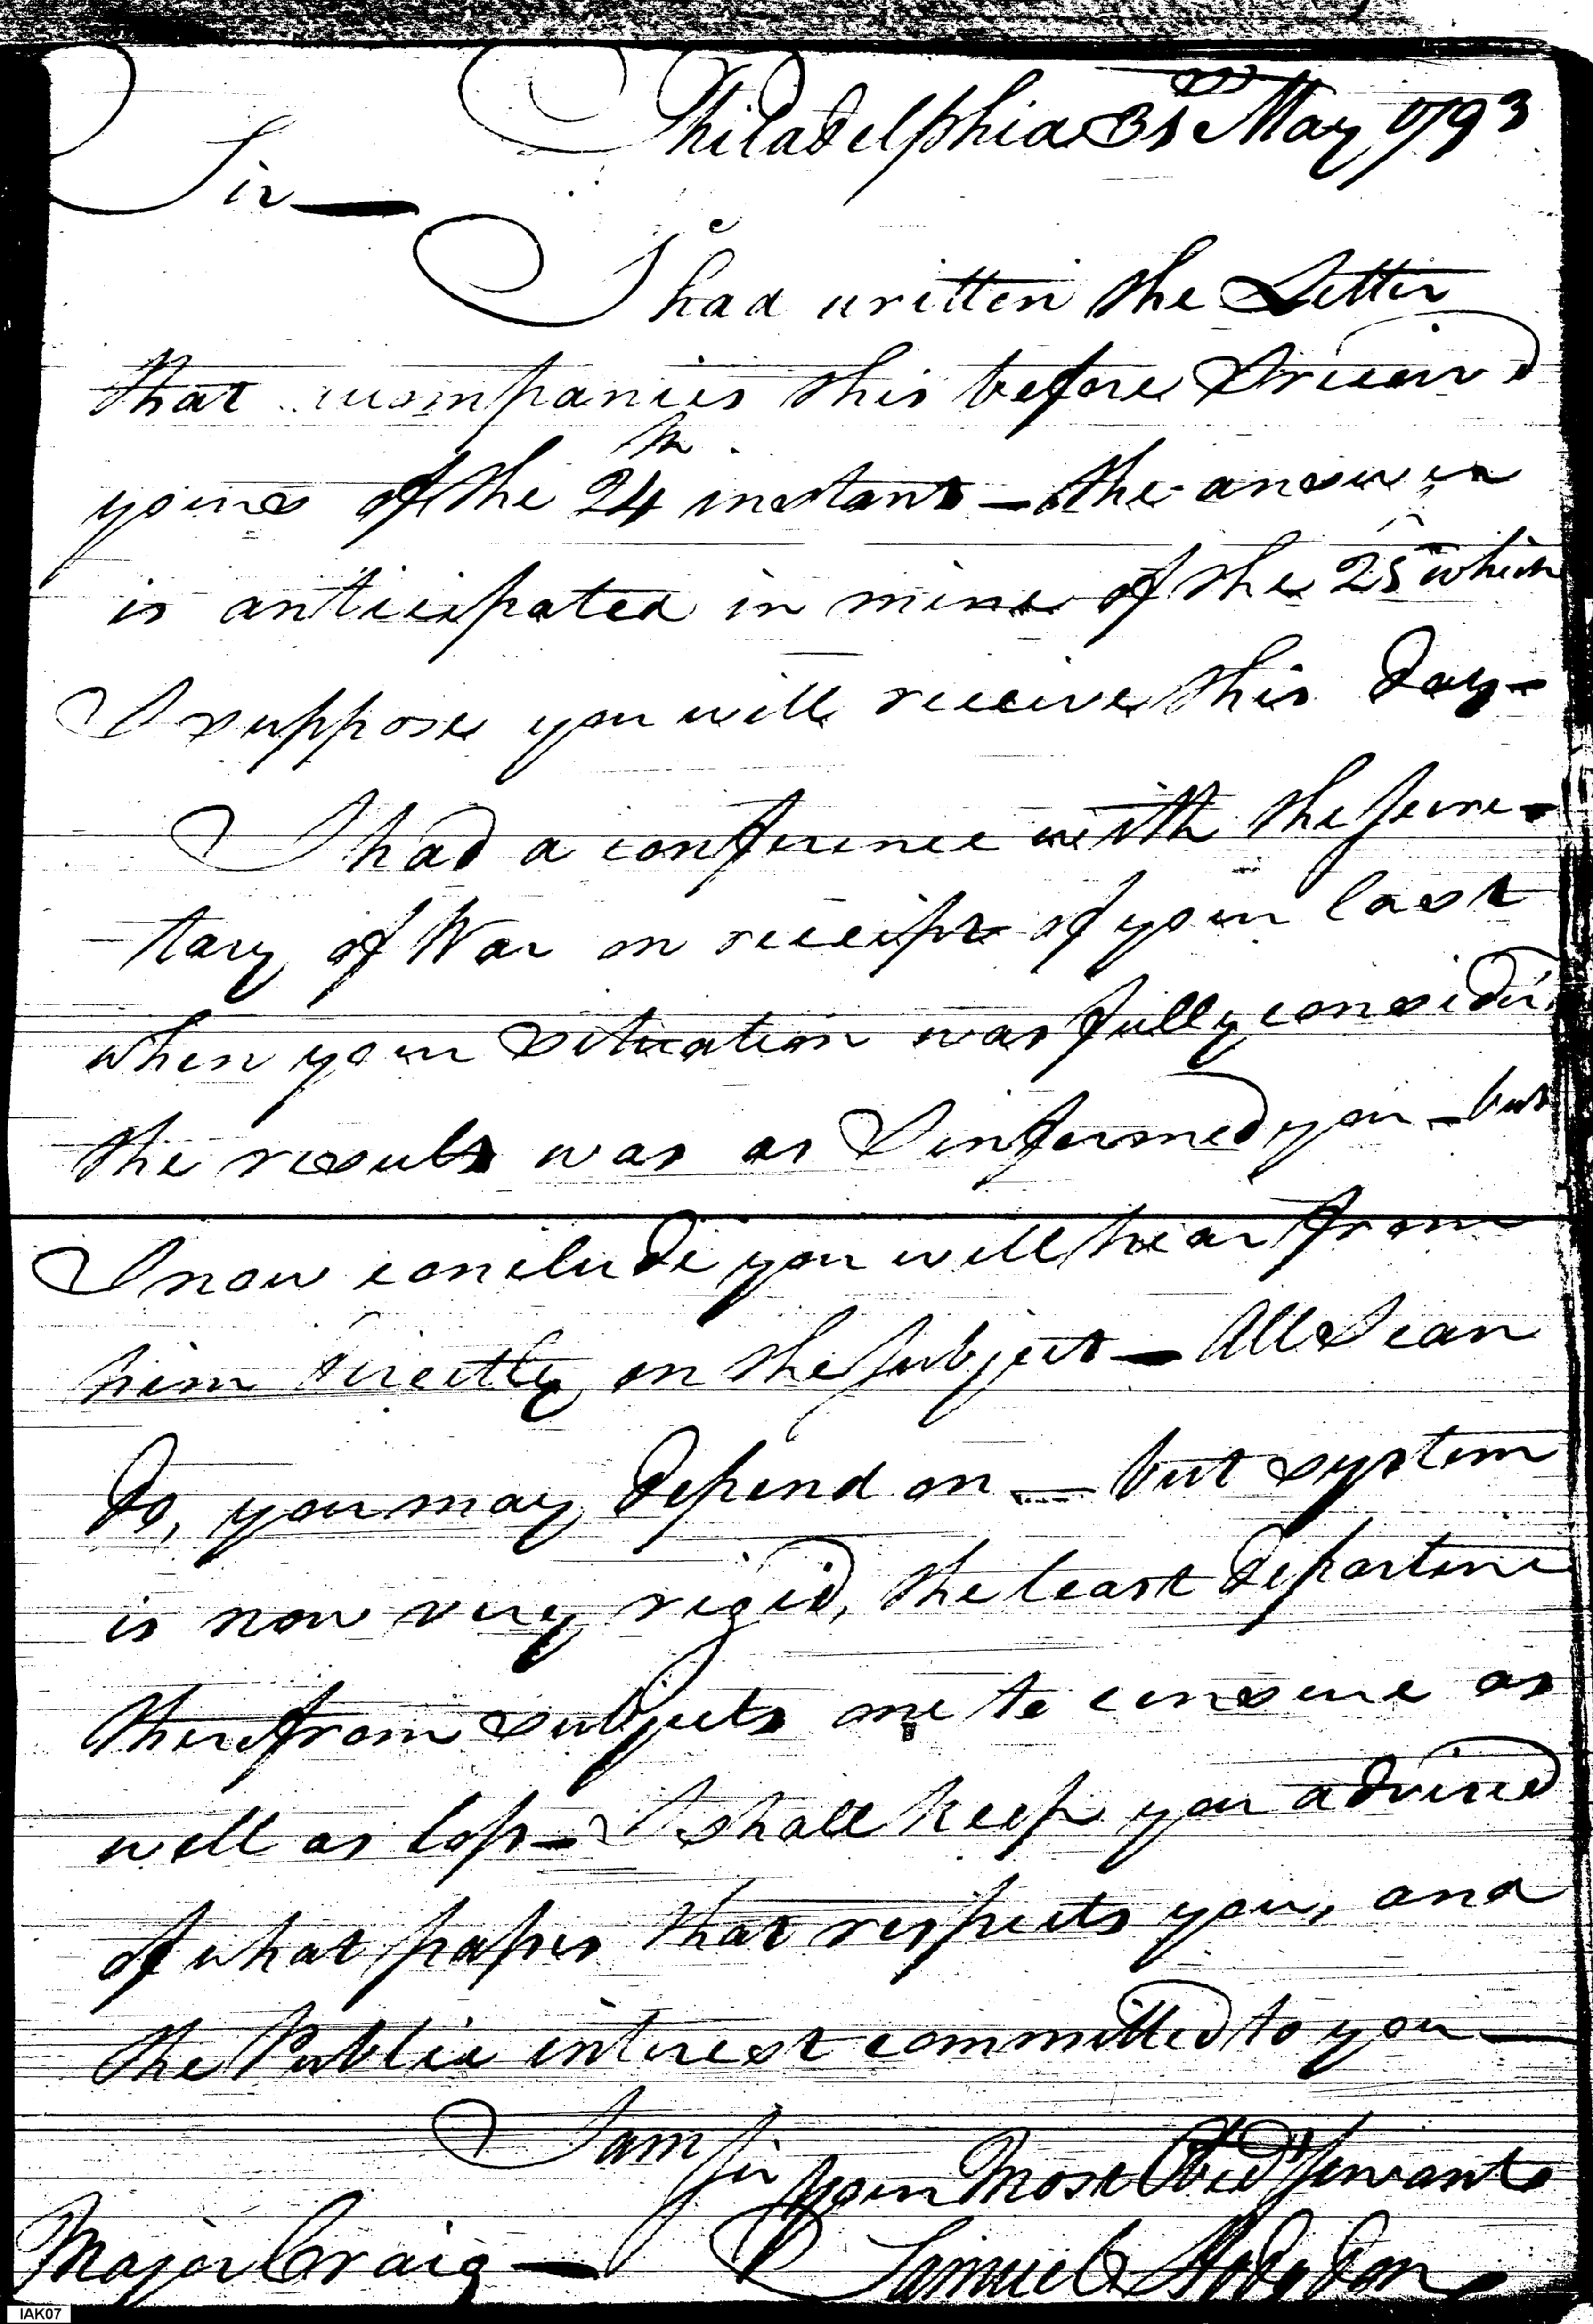 Philadelphia 31 May 1793
Sir —
I had written the Letter
that accompanies this before I receiv'd
yours of the 24th instant — the answer
is anticipated in mine of the 25 which
I suppose you will receive this day —
I had a conference with the Secre-
tary of War on receipt of your last
when your situation was fully consider'd
the result was as I informed you — but
I now conclude you will hear from
him directly on the subject — All I can
do, you may depend on — but system
is now very rigid, the least departure
therefrom subjects one to censure as
well as loss — I shall keep you advised
of what passes that respects you, and
the Public interest committed to you —
I am
Sir
Your Most Obedt Servant
Major Craig — Samuel Hodgdon
IAK07